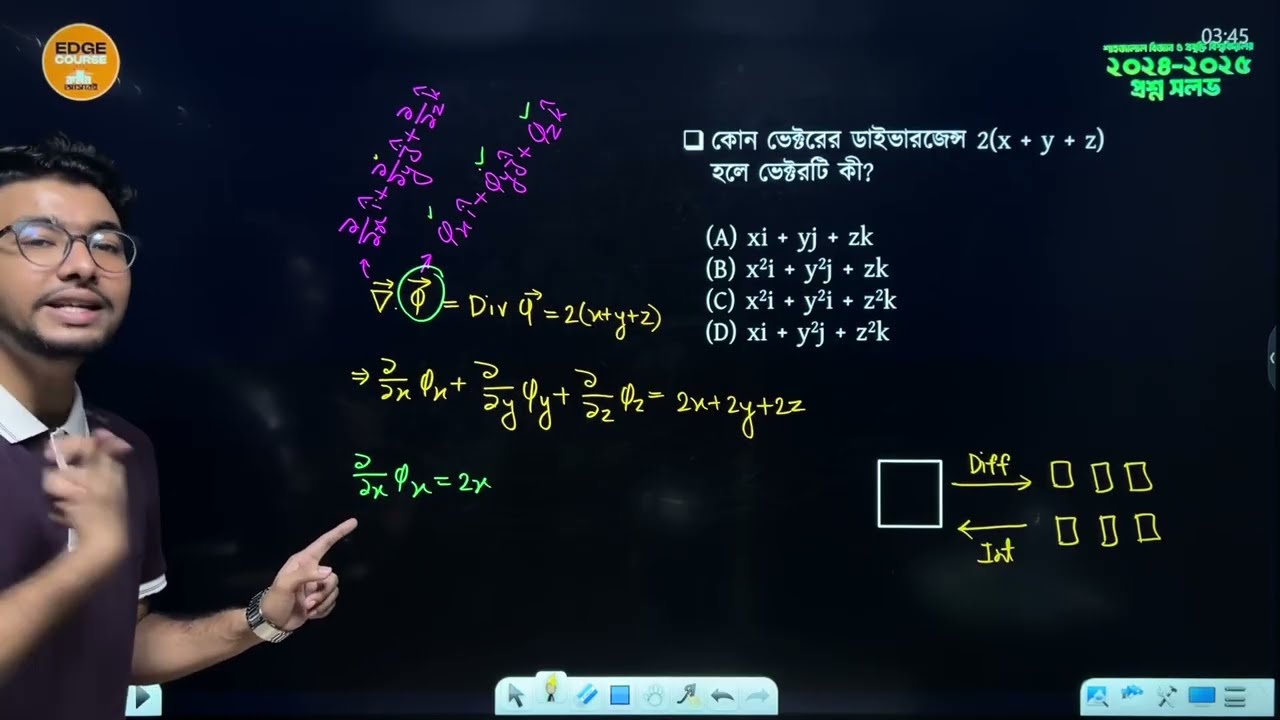 EDGE
COURSE
03:45
শাহজালাল বিজ্ঞান ও প্রযুক্তি বিশ্ববিদ্যালয়
২০২৪-২০২৫
প্রশ্ন সলভ
❑ কোন ভেক্টরের ডাইভারজেন্স 2(x + y + z)
হলে ভেক্টরটি কী?
(A) xi + yj + zk
(B) x²i + y²j + zk
(C) x²i + y²i + z²k
(D) xi + y²j + z²k
∂/∂x î + ∂/∂y ĵ + ∂/∂z k̂
φx î + φy ĵ + φz k̂
∇⃗. φ⃗ = Div φ⃗ = 2(x+y+z)
⇒ ∂/∂x φx + ∂/∂y φy + ∂/∂z φz = 2x+2y+2z
∂/∂x φx = 2x
Diff
Int